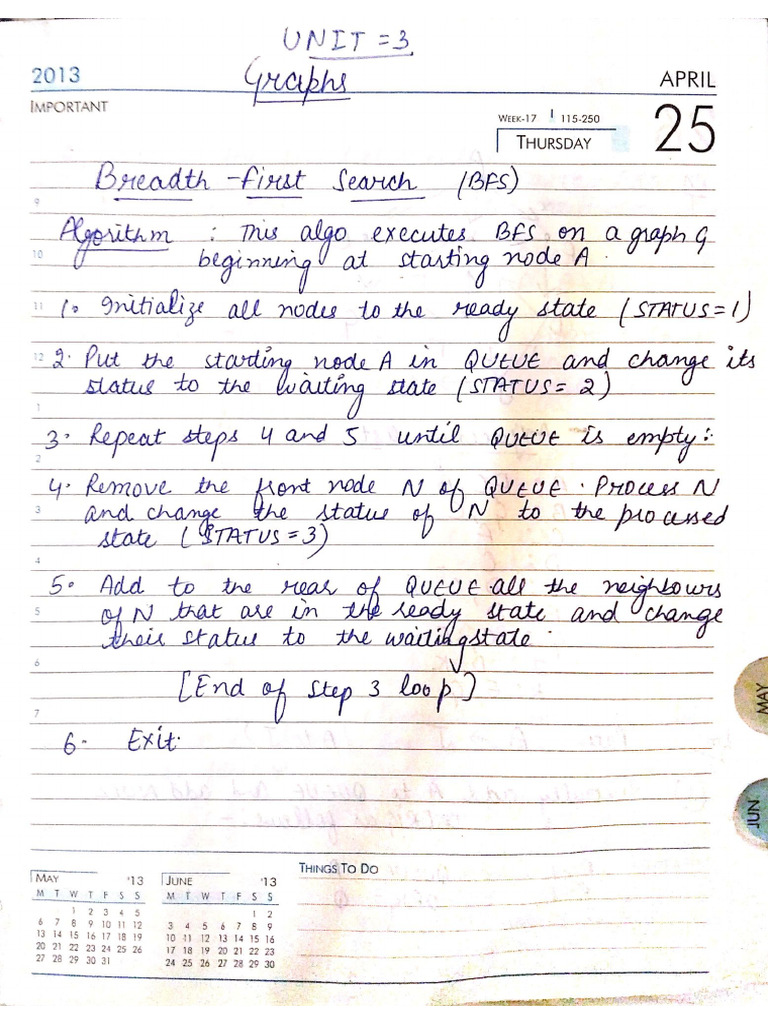 UNIT = 3
2013
Graphs
APRIL
IMPORTANT
WEEK-17 115-250
THURSDAY
25
Breadth - First Search (BFS)
9
Algorithm : This algo executes BFS on a graph G
10 beginning at starting node A.
11 1. Initialize all nodes to the ready state (STATUS = 1)
12 2. Put the starting node A in QUEUE and change its
status to the waiting state (STATUS = 2)
1
3. Repeat steps 4 and 5 until QUEUE is empty:
2
4. Remove the front node N of QUEUE. Process N
3 and change the status of N to the processed
state (STATUS = 3)
4
5. Add to the rear of QUEUE all the neighbours
5 of N that are in the ready state and change
their status to the waiting state.
6
[End of Step 3 loop]
7
6. Exit.
MAY
JUN
MAY '13
M T W T F S S
1 2 3 4 5
6 7 8 9 10 11 12
13 14 15 16 17 18 19
20 21 22 23 24 25 26
27 28 29 30 31
JUNE '13
M T W T F S S
1 2
3 4 5 6 7 8 9
10 11 12 13 14 15 16
17 18 19 20 21 22 23
24 25 26 27 28 29 30
THINGS TO DO